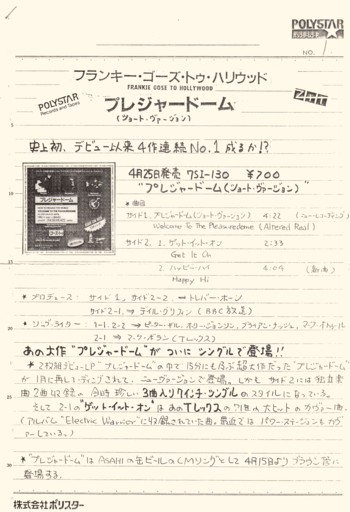 POLYSTAR
NO. 1
フランキー・ゴーズ・トゥ・ハリウッド
FRANKIE GOSE TO HOLLYWOOD
POLYSTAR
Records and Tapes
プレジャードーム
(ショート・ヴァージョン)
ZTT
史上初、デビュー以来4作連続No.1成るか!?
4月25日発売 7SI-130 ¥700
"プレジャードーム(ショート・ヴァージョン)"
* 曲目
サイド1. プレジャードーム(ショート・ヴァージョン) 4:22
Welcome To The Pleasuredome (Altered Real)
サイド2. 1. ゲット・イット・オン 2:33
Get It On
2. ハッピー・ハイ 4:04 (新曲)
Happy Hi
* プロデュース: サイド1, サイド2-2 → トレバー・ホーン
サイド2-1. → デイル・グリフィン (BBC放送)
* ソングライター: 1-1. 2-2 → ピーター・ギル, ホリー・ジョンソン, ブライアン・ナッシュ, マーク・オトゥール
2-1 → マーク・ボラン (Tレックス)
あの大作"プレジャードーム"がついにシングルで登場!!
* 2枚組デビューLP"プレジャードーム"の中で15分にも及ぶ超大作だった"プレジャードーム"
が1月に再レコーディングされて、ニューヴァージョンで登場。しかもサイド2には独立楽
曲2曲収録の珍しい3曲入り7インチ・シングルのスタイルになっている。
そして2-1の"ゲット・イット・オン"はあのTレックスの71年の大ヒットのカヴァー曲。
(アルバム"Electric Warrier"に収録されていた曲。最近ではパワー・ステーションもカヴ
ァーしている。)
* "プレジャードーム"はASAHIの缶ビールのCMソングとして4月15日よりブラウン管に
登場する。
株式会社ポリスター